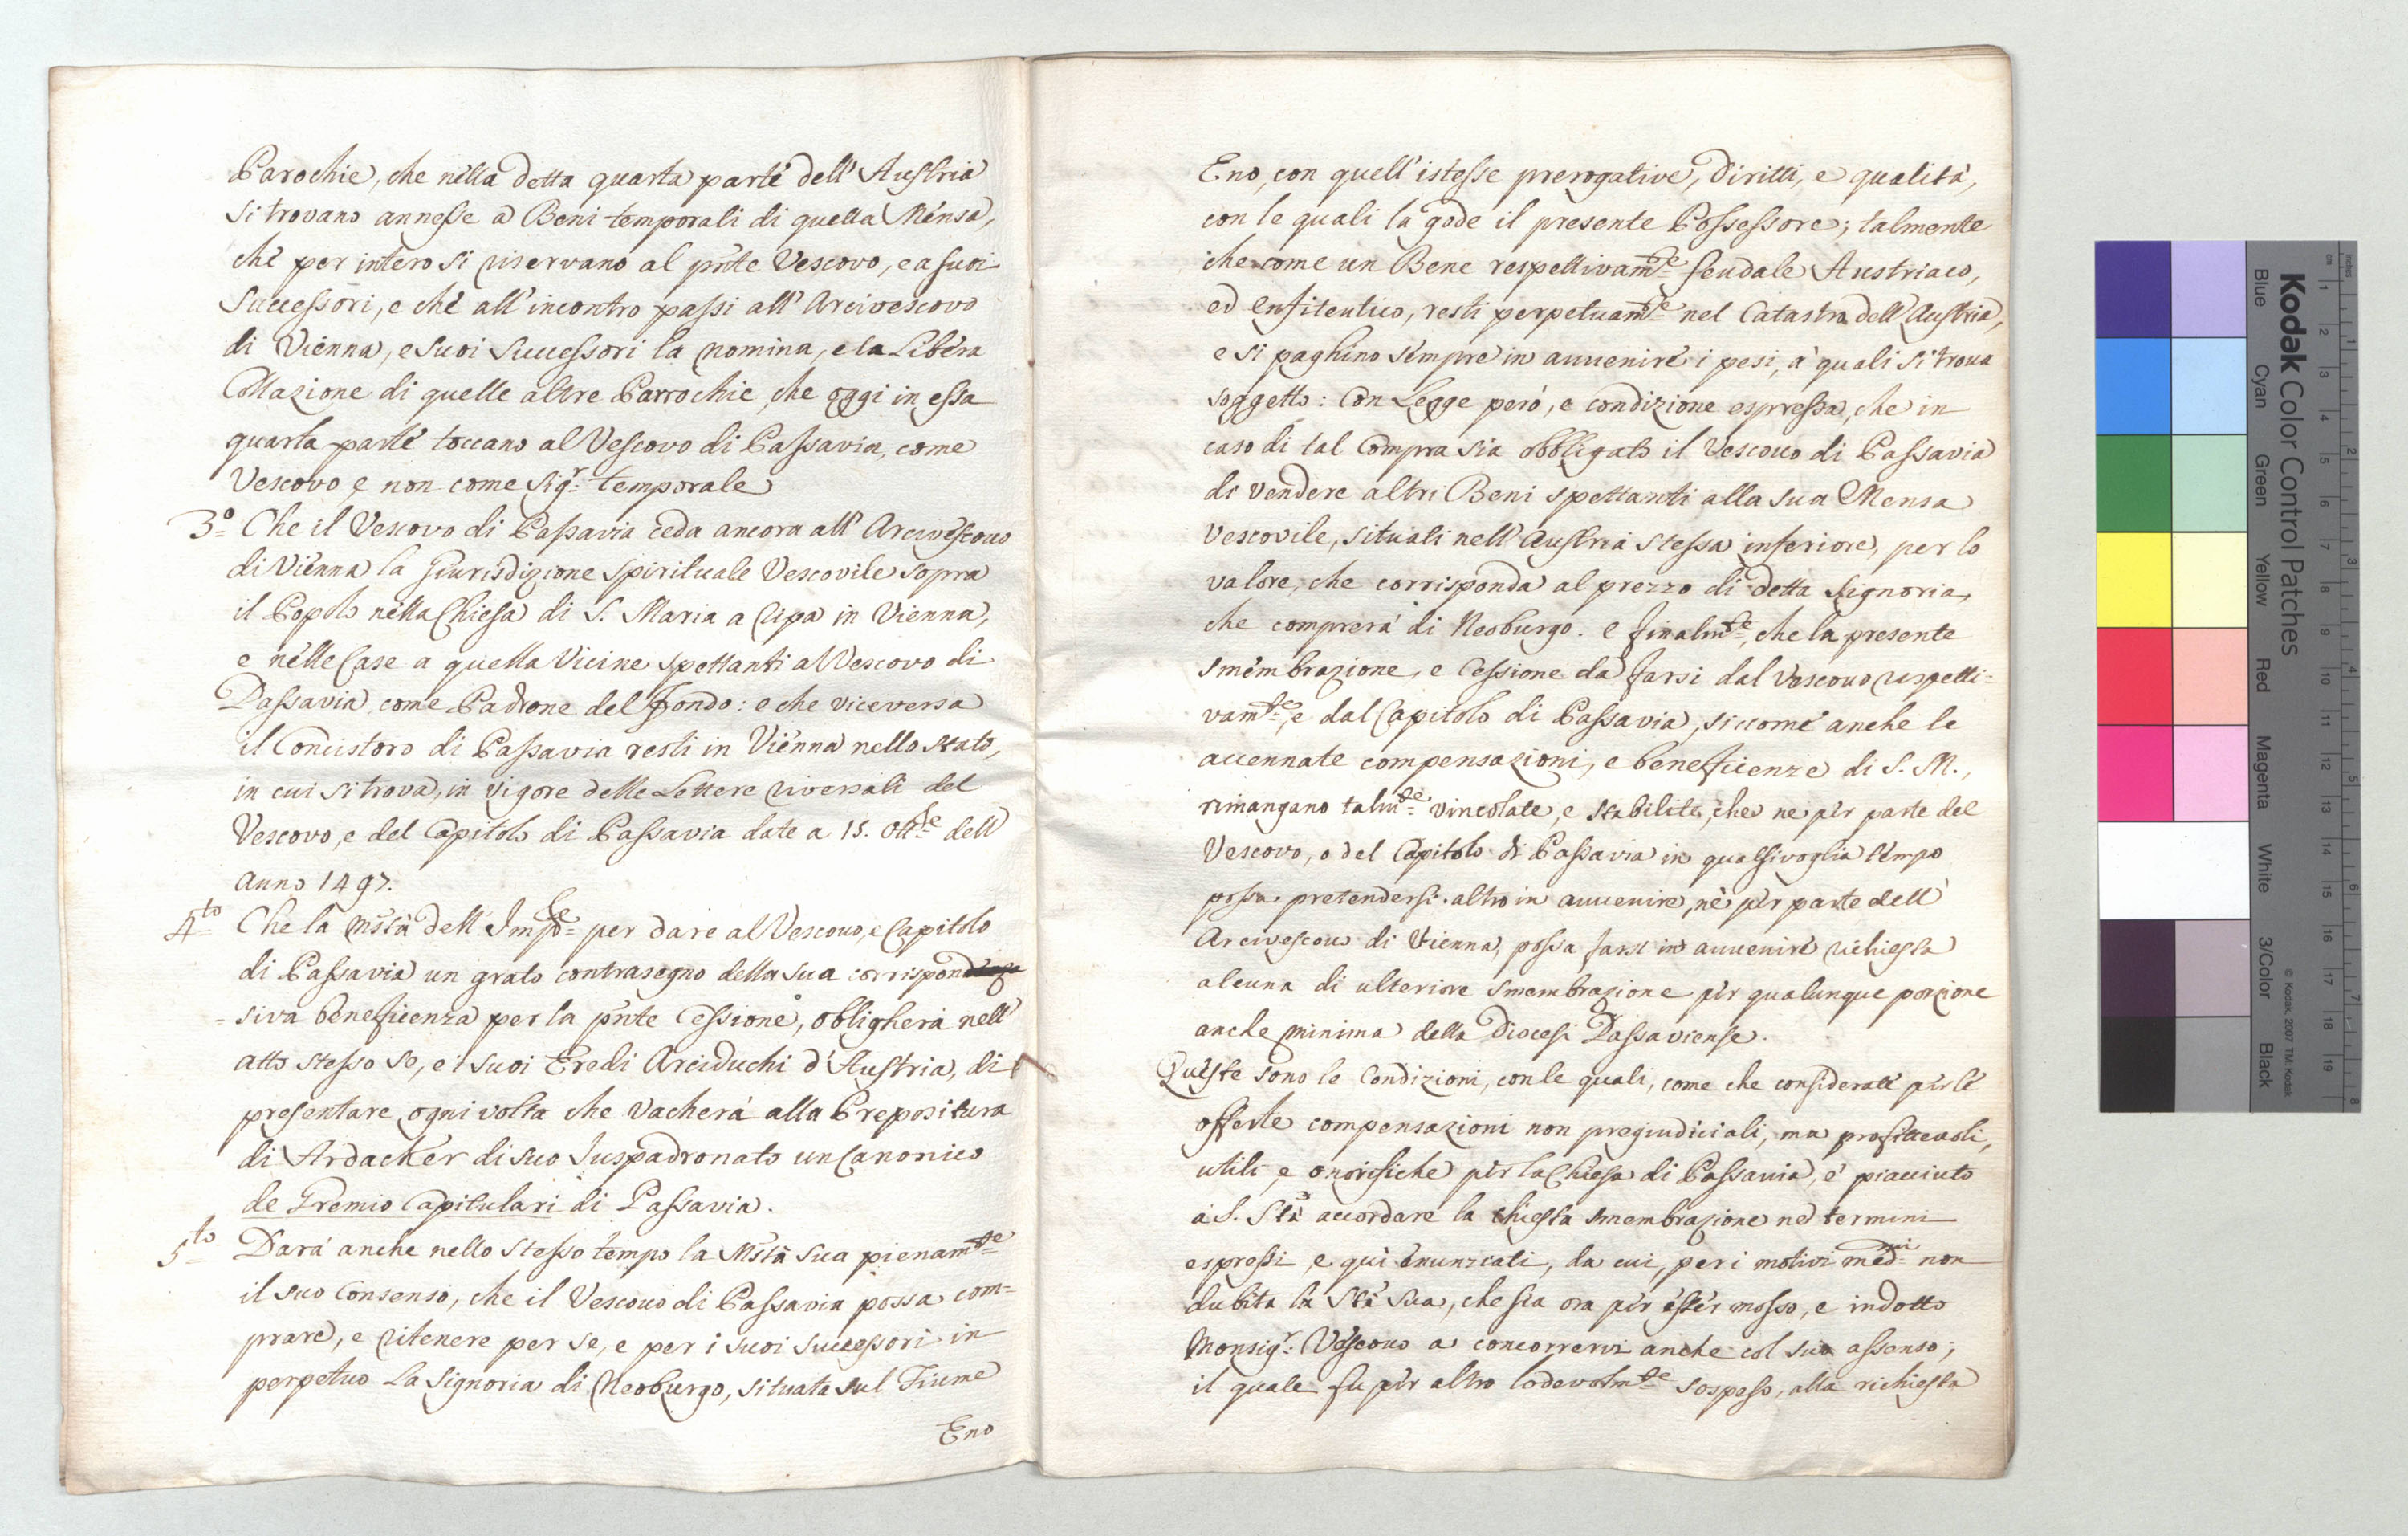 Parochie, che nella detta quarta parte dell' Austria
si trovano annesse a Beni temporali di quella Mensa,
che per intero si riservano al pñte Vescovo, e a suoi
Successori, e che all' incontro passi all' Arcivescovo
di Vienna, e suoi Successori la nomina, e la Libera
Collazione di quelle altre Parrochie, che oggi in essa
quarta parte toccano al Vescovo di Passavia, come
Vescovo, e non come Sigr. temporale
3º Che il Vescovo di Passavia ceda ancora all' Arcivescovo
di Vienna la Giurisdizione Spirituale Vescovile sopra
il Popolo nella Chiesa di S. Maria a Ripa in Vienna,
e nelle Case a quella Vicine spettanti al Vescovo di
Passavia, come Padrone del fondo: e che viceversa
il Concistoro di Passavia resti in Vienna nello stato,
in cui si trova, in vigore delle Lettere riversali del
Vescovo, e del Capitolo di Passavia date a 15. Ottbe dell'
anno 1497.
4to Che la Mstà dell' Impe per dare al Vescovo, e Capitolo
di Passavia un grato contrasegno della sua corrispon
siva beneficenza per la pñte Cessione, obligherà nell'
atto stesso se, e i suoi Eredi Arciduchi d'Austria, di
presentare ogni volta che vacherà alla Prepositura
di Ardacker di suo Juspadronato un Canonico
de Gremio Capitulari di Passavia.
5to Darà anche nello stesso tempo la Mstà sua pienamte
il suo Consenso, che il Vescovo di Passavia possa com=
prare, e ritenere per se, e per i suoi successori in
perpetuo la Signoria di Neoburgo, situata sul Fiume
Eno
Eno, con quell' istesse prerogative, diritti, e qualità,
con le quali la gode il presente Possessore; talmente
che come un Bene respettivamte feudale Austriaco,
ed enfiteutico, resti perpetuamte nel Catastro dell' Austria,
e si paghino sempre in auvenire i pesi, a' quali si troua
soggetto: Con Legge però, e condizione espressa, che in
caso di tal Compra sia obbligato il Vescouo di Passavia
di vendere altri Beni spettanti alla sua Mensa
Vescovile, situati nell' Austria stessa inferiore, per lo
valore, che corrisponda al prezzo di detta Signoria,
che comprerà di Neoburgo. e finalmte, che la presente
smembrazione, e Cessione da farsi dal Vescouo rispetti=
vamte, e dal Capitolo di Passavia, siccome anche le
accennate compensazioni, e beneficenze di S. M.,
rimangano talmte vincolate, e stabilite, che ne per parte del
Vescovo, o del Capitolo di Passavia in qualsivoglia tempo
possa pretendersi altro in auuenire, nè per parte dell'
Arcivescouo di Vienna, possa farsi in auuenire richiesta
alcuna di ulteriore smembrazione per qualunque porzione
anche minima della Diocesi Passaviense.
Queste sono le Condizioni, con le quali, come che considerate per le
offerte compensazioni non pregiudiciali, ma profitteuoli,
utili, e onorifiche per la Chiesa di Passauia, è piacciuto
a S. Stà accordare la chiesta smembrazione ne' termini
espressi e quì enunziati, da cui, per i motivi medmi non
dubita la Stà Sua, che sia ora per esser mosso, e indotto
Monsigr. Vescouo a concorrervi anche col suo assenso;
il quale fu per altro lodevolmte sospeso, alla richiesta
Kodak Color Control Patches
Blue
Cyan
Green
Yellow
Red
Magenta
White
3/Color
Black
© Kodak, 2007 TM: Kodak
inches
cm
1
2
3
4
5
6
7
8
9
10
11
12
13
14
15
16
17
18
19
1
2
3
4
5
6
7
8